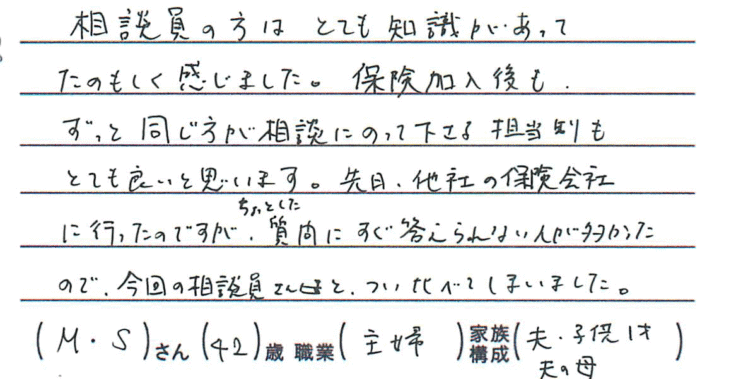 相談員の方は とても知識があって
たのもしく感じました。保険加入後も、
ずっと同じ方が相談にのって下さる 担当制も
とても良いと思います。先日、他社の保険会社
ちょっとした
に行ったのですが、質問にすぐ答えられない人が多かった
ので、今回の相談員さんと、ついくらべてしまいました。
(M・S)さん(42)歳 職業(主婦)家族構成(夫・子供1才
夫の母)